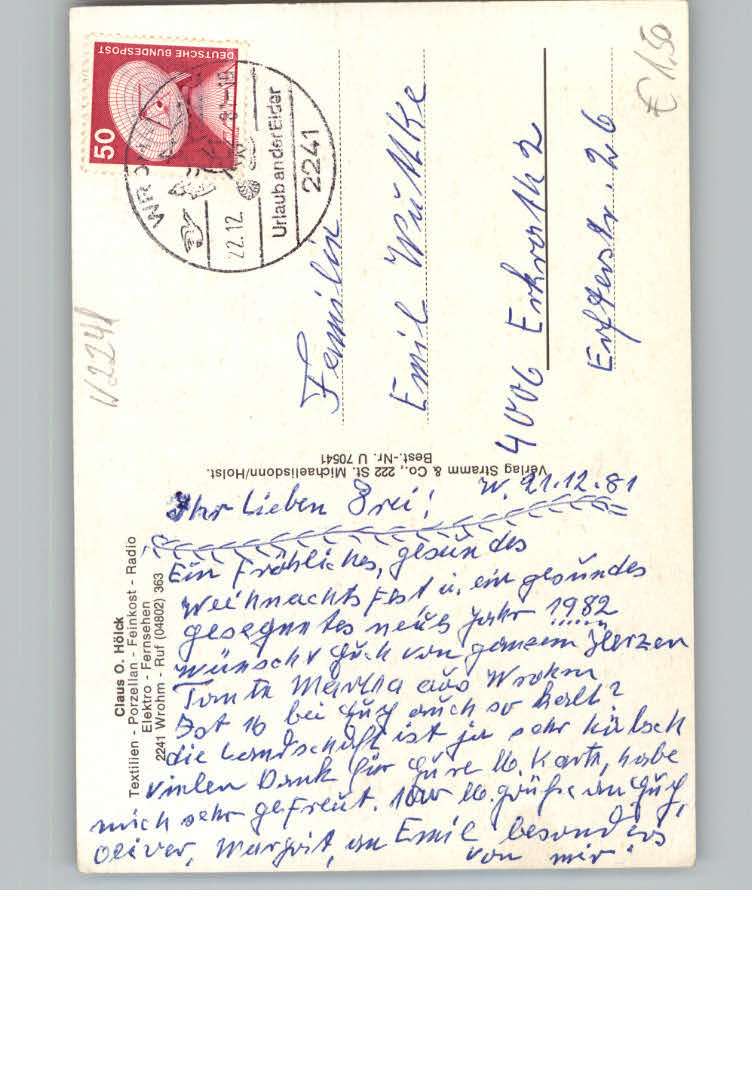 € 1,50
DEUTSCHE BUNDESPOST
50
WIR
22.12.
Urlaub an der Eider
2241
W2241
Familie
Emil Wüttke
4006 Erkrath 2
Erfterstr. 26
Verlag Stramm & Co., 222 St. Michaelisdonn/Holst.
Best.-Nr. U 70541
Claus O. Hölck
Textilien - Porzellan - Feinkost - Radio
Elektro - Fernsehen
2241 Wrohm - Ruf (04802) 363
W. 21.12.81
Ihr Lieben Drei!
Ein fröhliches, gesundes
Weihnachtsfest u. ein gesundes
gesegnetes neues Jahr 1982
wünscht Euch von ganzem Herzen
Tante Martha aus Wrohm
Ist es bei Euch auch so kalt?
die Landschaft ist ja sehr hübsch
vielen Dank für Eure lb. Karte, habe
mich sehr gefreut. 1000 lb. Grüße an Euch,
Oliver, Margrit, an Emil besonders
von mir